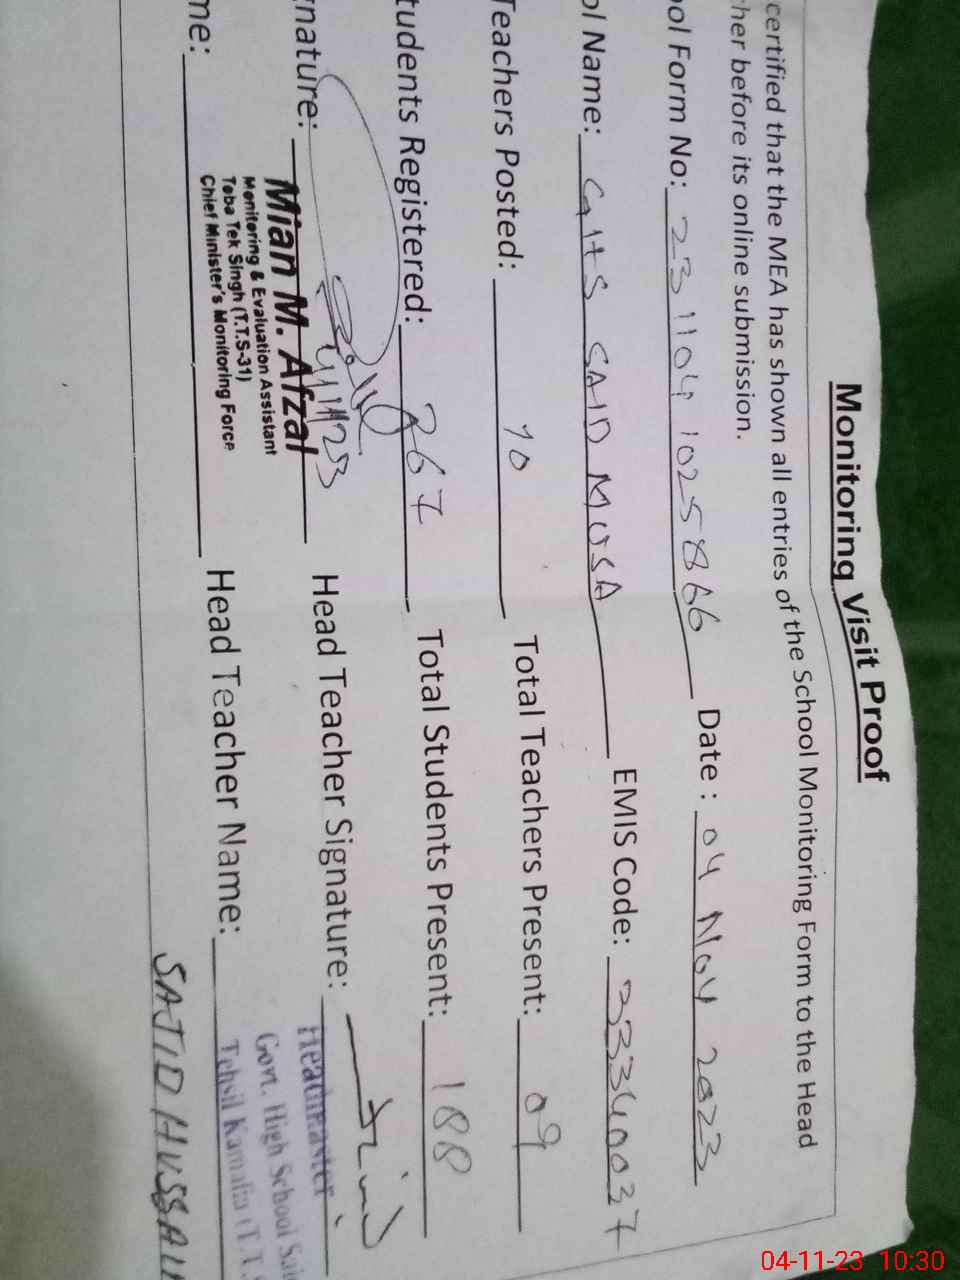 Monitoring Visit Proof
certified that the MEA has shown all entries of the School Monitoring Form to the Head
her before its online submission.
ol Form No: 2311041025866 Date : 04 Nov 2023
ol Name: GHS SAID MUSA EMIS Code: 33340037
Teachers Posted: 10 Total Teachers Present: 09
tudents Registered: 267 Total Students Present: 188
nature: Head Teacher Signature:
4/11/23
Mian M. Afzal
Monitoring & Evaluation Assistant
Toba Tek Singh (T.T.S-31)
Chief Minister's Monitoring Force
Headmaster
Govt. High School Sai
Tehsil Kamalia (T.T.S
me: Head Teacher Name:
SAJID HUSSAIN
04-11-23 10:30